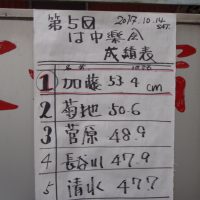 第5回 2017.10.14. SAT.
は中楽会
成績表
1 加藤 53.4 cm
2 菊地 50.6
3 菅原 48.9
4 長谷川 47.9
5 清水 47.7